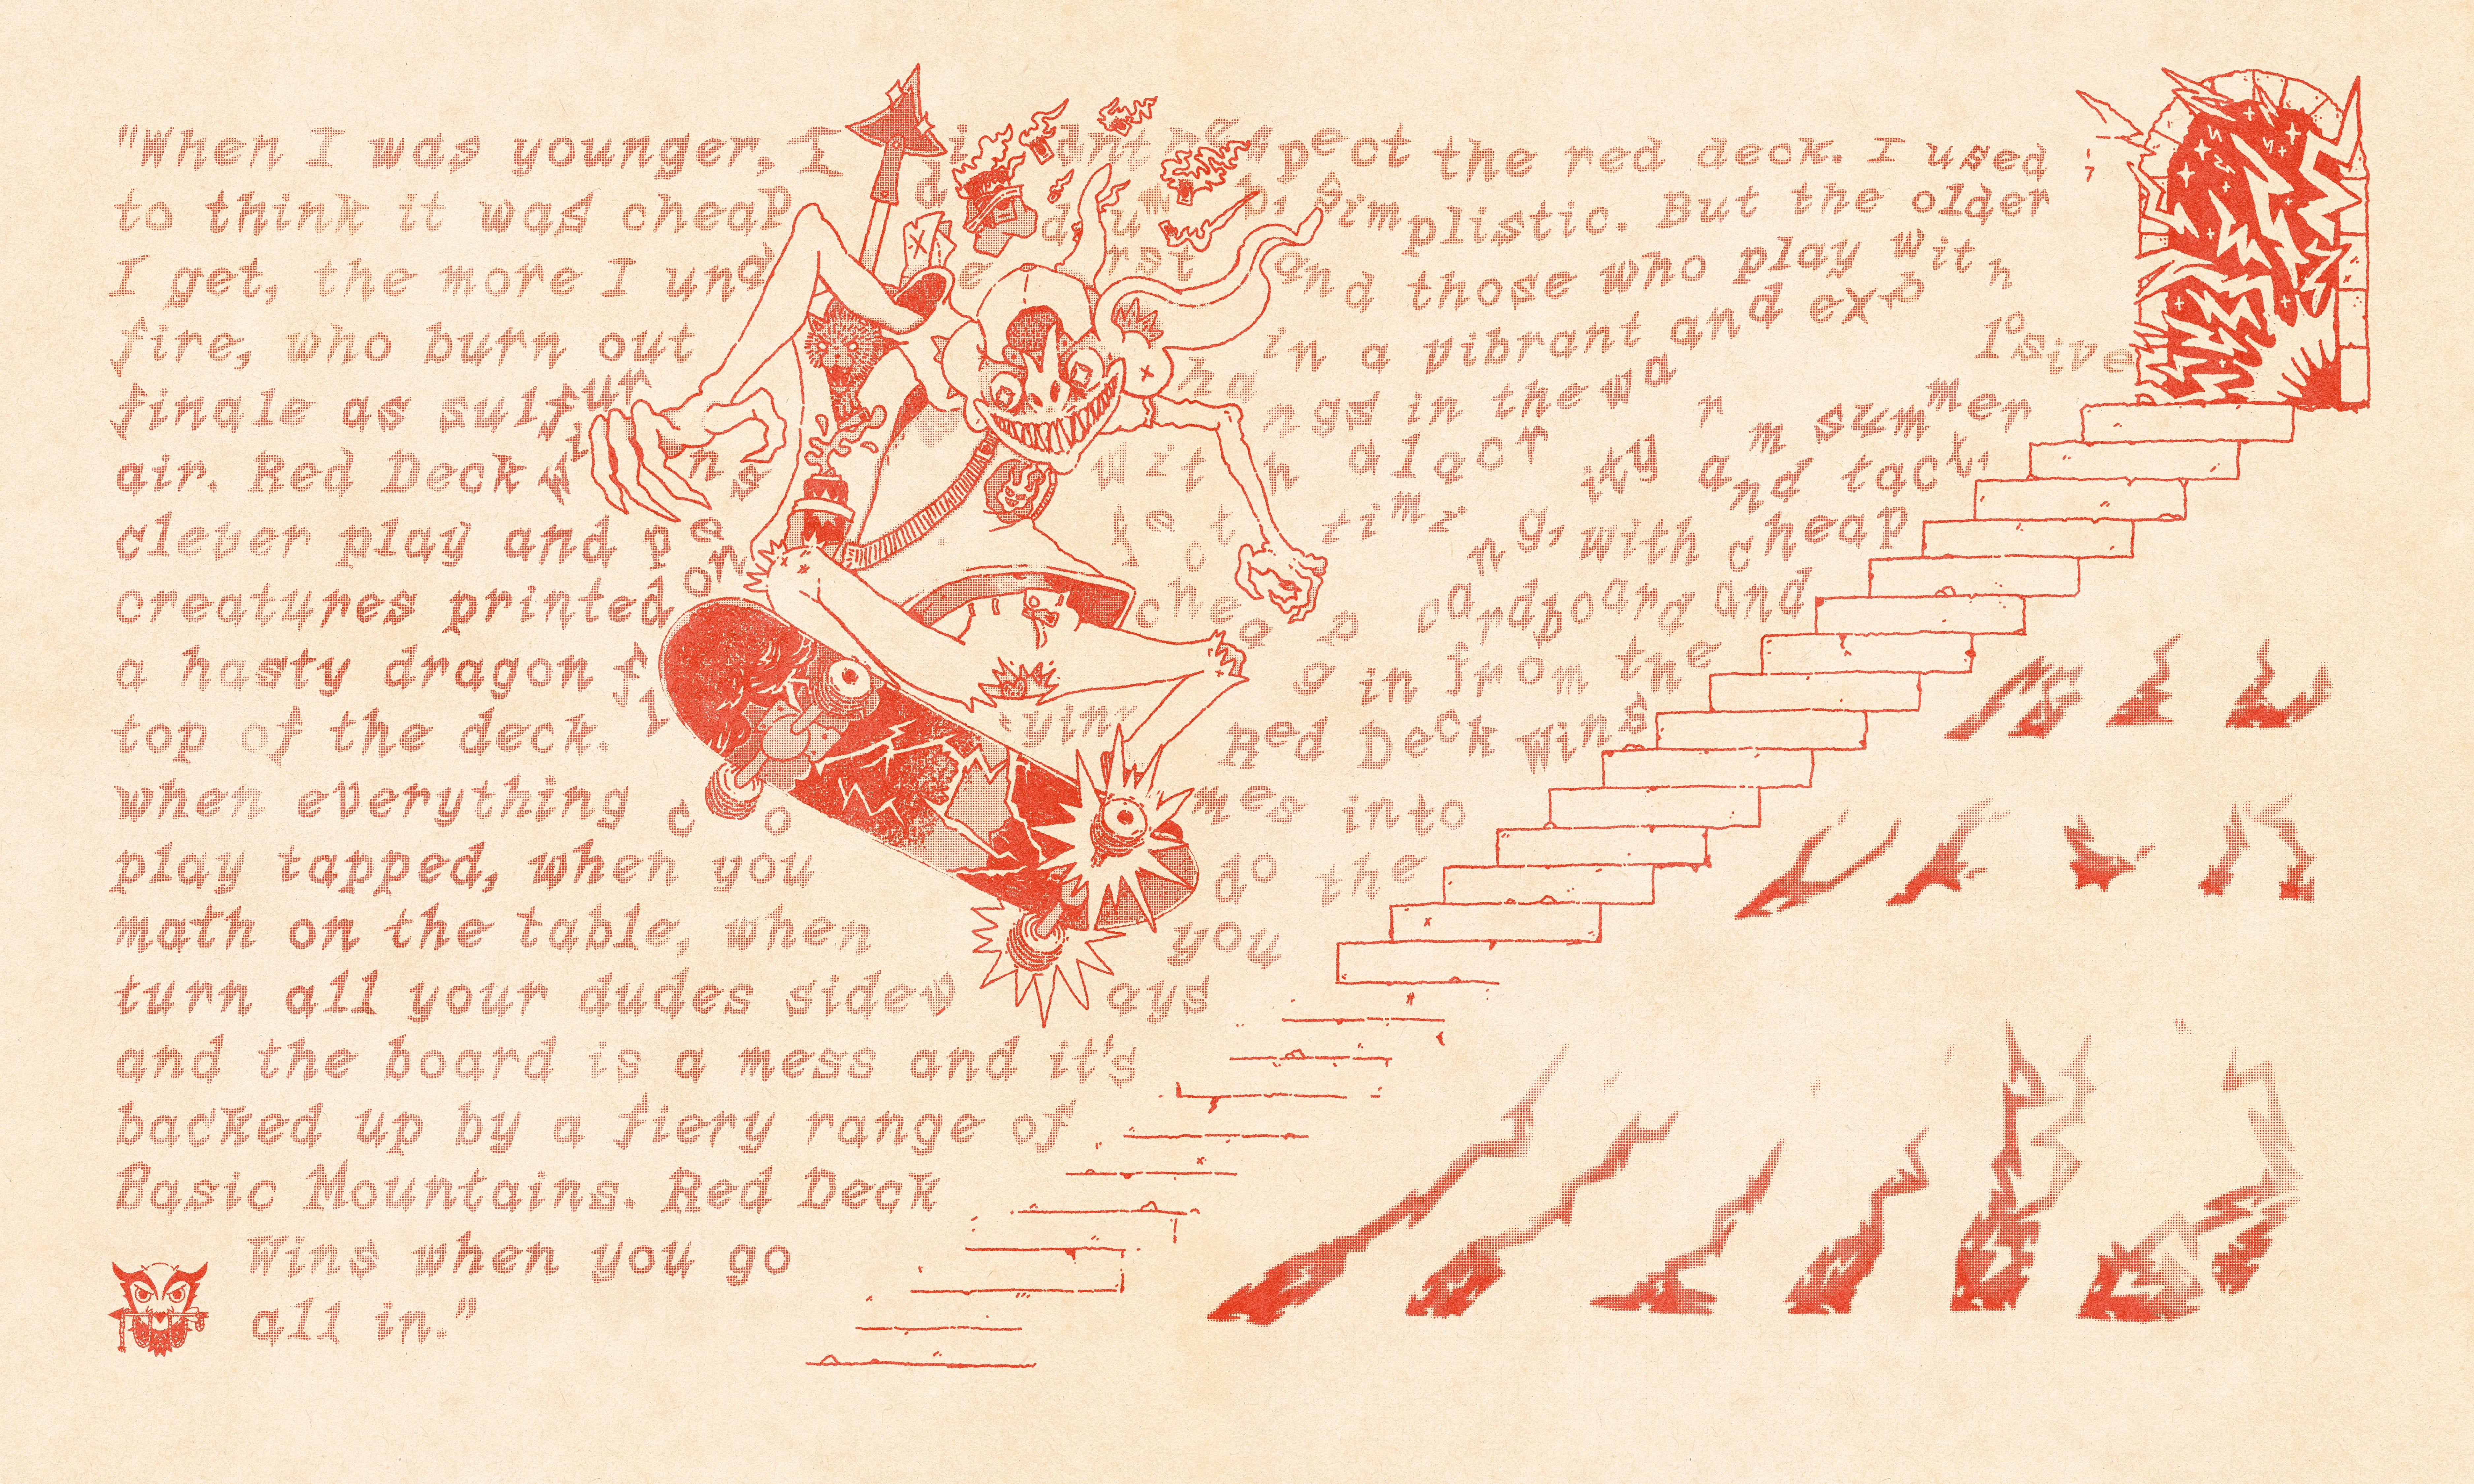 "When I was younger, I didn't respect the red deck. I used
to think it was cheap, dumb, simplistic. But the older
I get, the more I understand those who play with
fire, who burn out in a vibrant and explosive
finale as sulfur hangs in the warm summer
air. Red Deck Wins with alacrity and tact,
clever play and perfect timing, with cheap
creatures printed on cheap cardboard and
a hasty dragon flying in from the
top of the deck. Red Deck Wins
when everything comes into
play tapped, when you do the
math on the table, when you
turn all your dudes sideways
and the board is a mess and it's
backed up by a fiery range of
Basic Mountains. Red Deck
Wins when you go
all in."